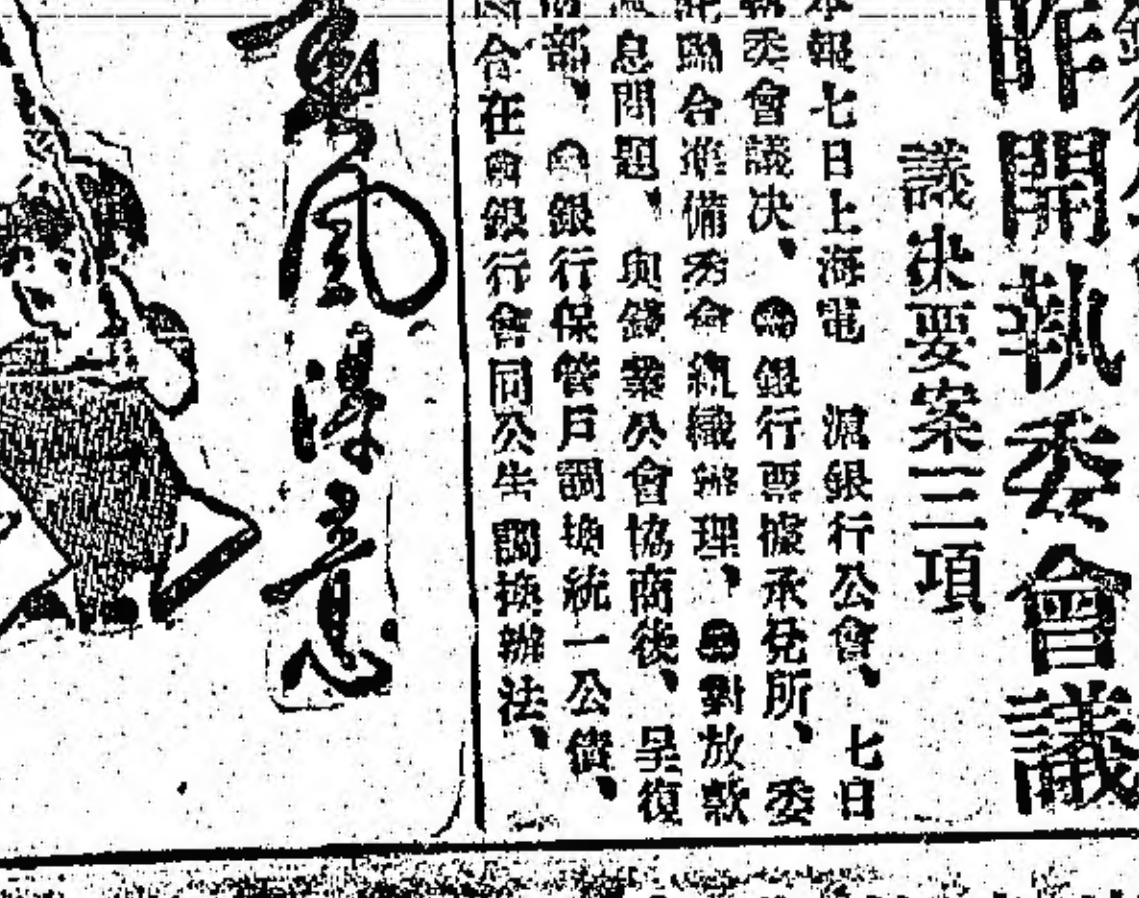 昨開執委會議
議決要案三項
本報七日上海電　滬銀行公會、七日
執委會議決、㊀銀行票據承兌所、委
託聯合準備委會組織辦理、㊁對放款
息問題、與錢業公會協商後、呈復
部、㊂銀行保管戶調換統一公債、
合在會銀行會同公告調換辦法、
風得意